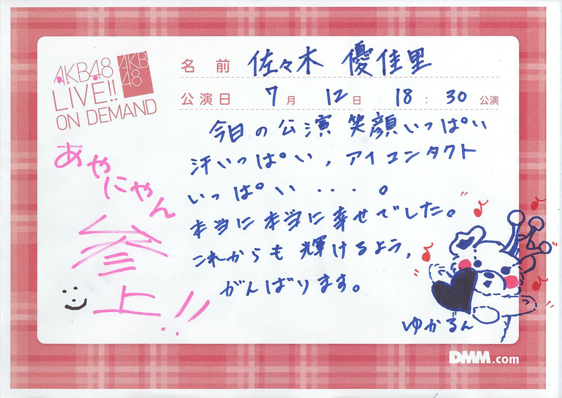 AKB48
LIVE!!
ON DEMAND
AKB
48
名前 佐々木 優佳里
公演日 7月 12日 18:30 公演
今日の公演 笑顔いっぱい
汗いっぱい、アイコンタクト
いっぱい・・・。
本当に本当に幸せでした。
これからも輝けるよう、
がんばります。
ゆかるん
あやにゃん
参上!!
DMM.com